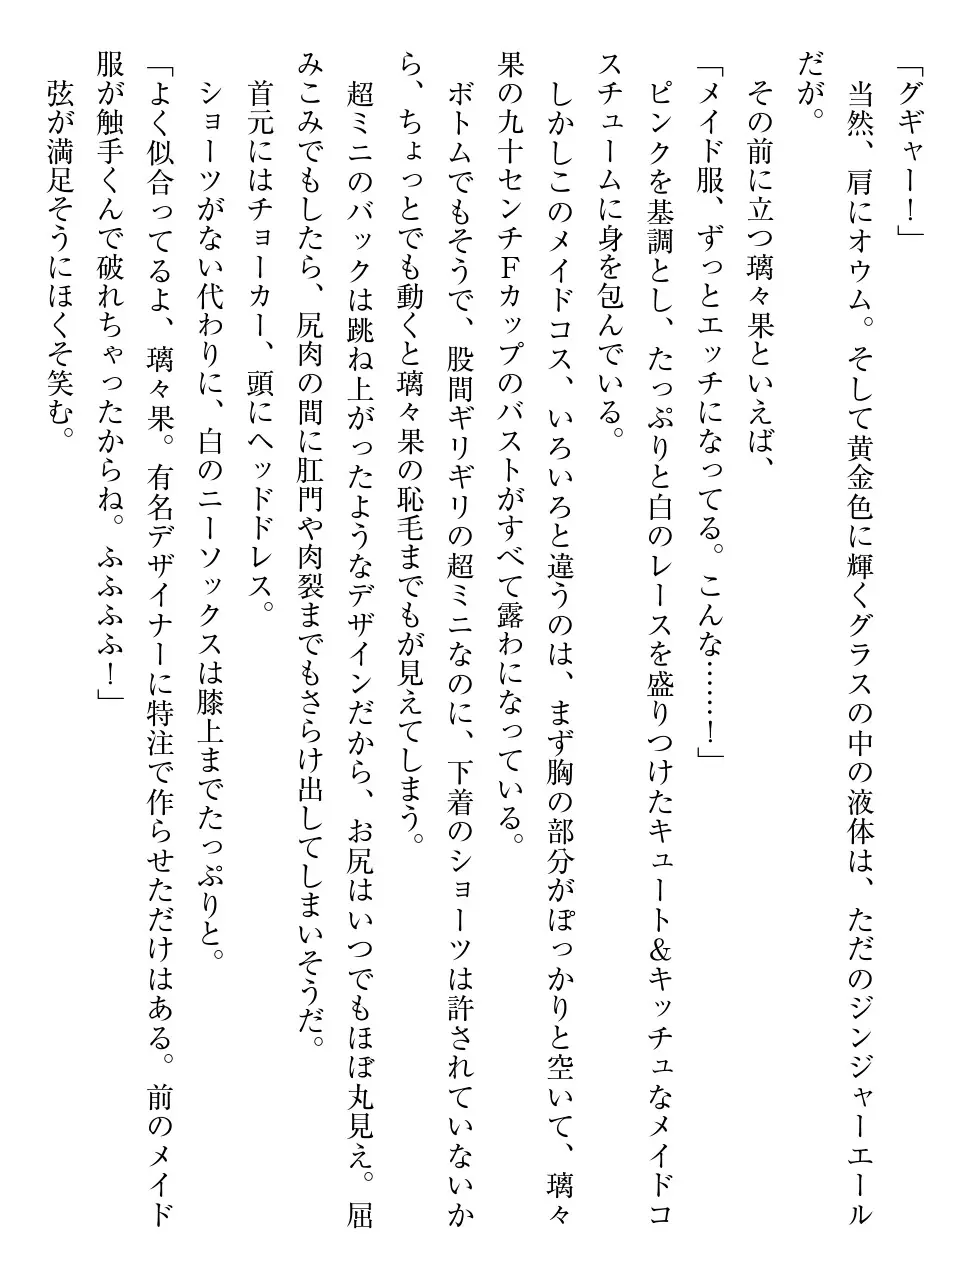 「グギャー！」
　当然、肩にオウム。そして黄金色に輝くグラスの中の液体は、ただのジンジャーエール
だが。
　その前に立つ璃々果といえば、
「メイド服、ずっとエッチになってる。こんな……！」
　ピンクを基調とし、たっぷりと白のレースを盛りつけたキュート＆キッチュなメイドコ
スチュームに身を包んでいる。
　しかしこのメイドコス、いろいろと違うのは、まず胸の部分がぽっかりと空いて、璃々
果の九十センチＦカップのバストがすべて露わになっている。
　ボトムでもそうで、股間ギリギリの超ミニなのに、下着のショーツは許されていないか
ら、ちょっとでも動くと璃々果の恥毛までもが見えてしまう。
　超ミニのバックは跳ね上がったようなデザインだから、お尻はいつでもほぼ丸見え。屈
みこみでもしたら、尻肉の間に肛門や肉裂までもさらけ出してしまいそうだ。
　首元にはチョーカー、頭にヘッドドレス。
　ショーツがない代わりに、白のニーソックスは膝上までたっぷりと。
「よく似合ってるよ、璃々果。有名デザイナーに特注で作らせただけはある。前のメイド
服が触手くんで破れちゃったからね。ふふふふ！」
　弦が満足そうにほくそ笑む。